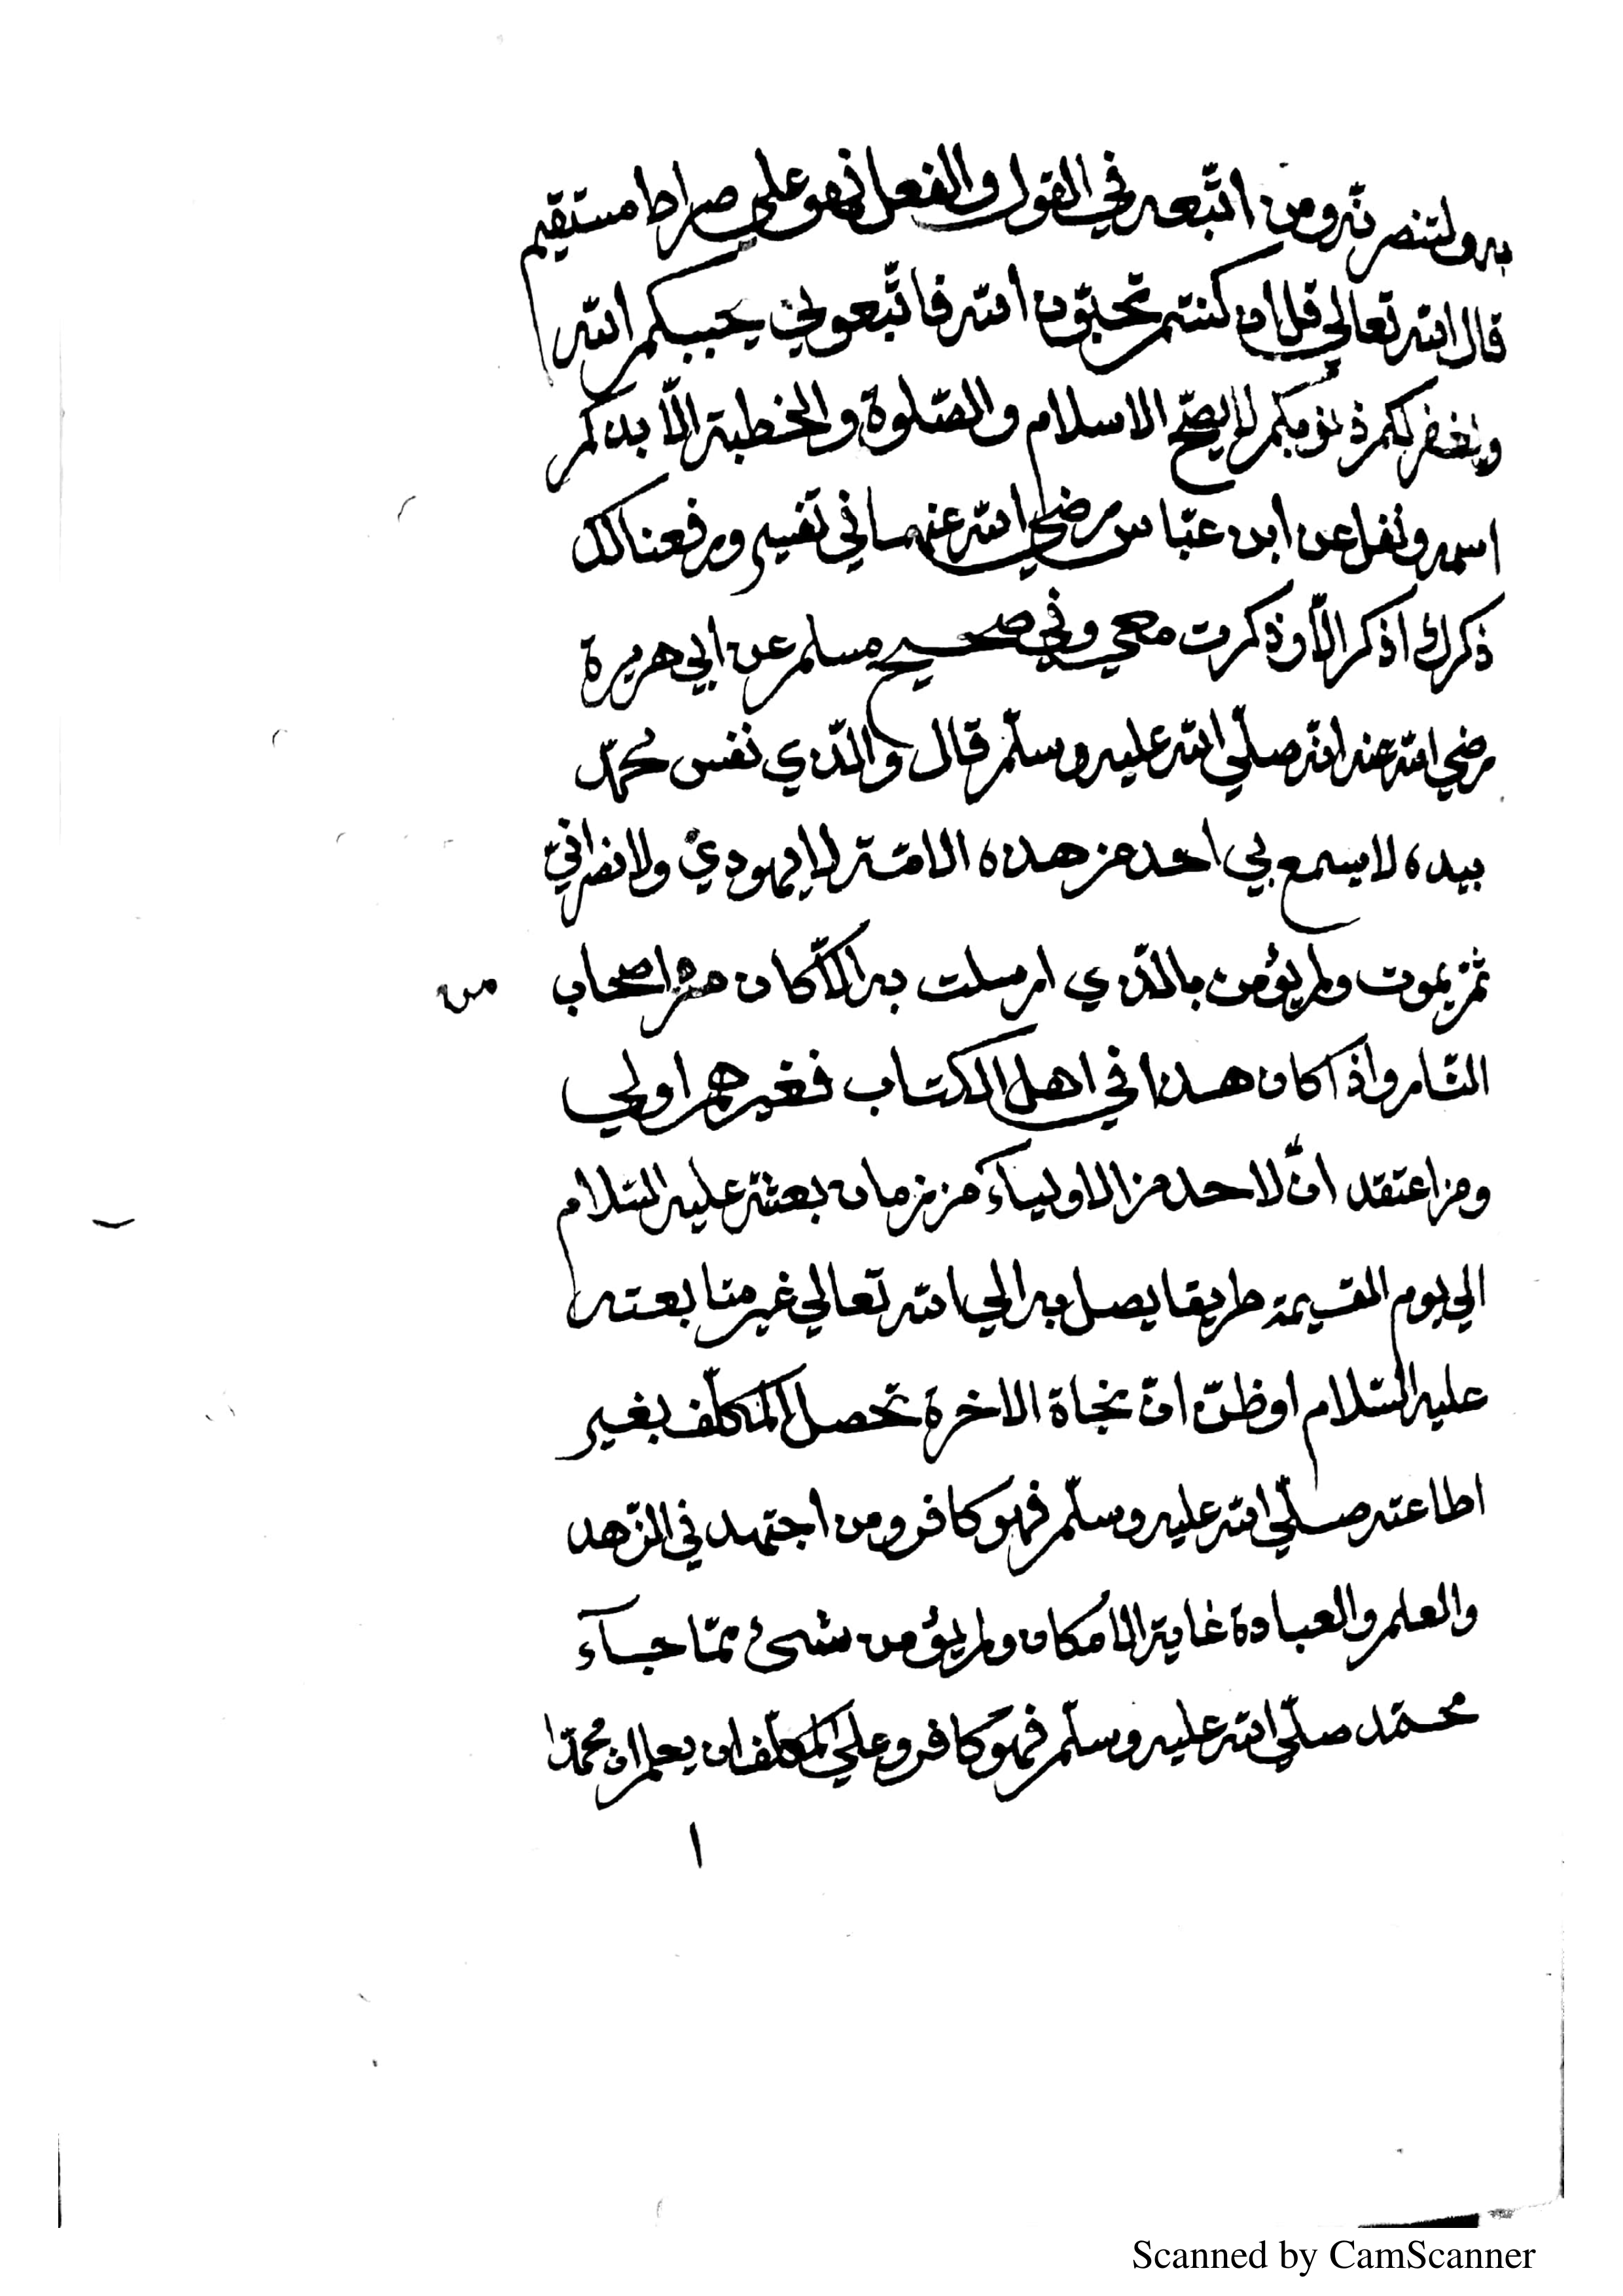 به ولتنصرنّه ومن اتّبعه في القول والفعل فهو على صراط مستقيم
قال الله تعالى قل ان كنتم تحبّون الله فاتّبعوني يحببكم الله
ويغفر لكم ذنوبكم لا يصحّ الاسلام والصّلوة والخطبة الّا بذكر
اسمه ونقل عن ابن عبّاس رضي الله عنهما في تفسير ورفعنا لك
ذكرك اذكر الّا وذكرت معي وفي صحيح مسلم عن ابي هريرة
رضي الله عنه انّه صلّى الله عليه وسلّم قال والّذي نفس محمّد
بيده لا يسمع بي احد من هذه الامّة لا يهوديّ ولا نصرانيّ
ثمّ يموت ولم يؤمن بالّذي ارسلت به الّا كان من اصحاب
من
النّار واذا كان هذا في اهل الكتاب فغيرهم اولى
ومن اعتقد انّ لاحد من الاولياء من زمان بعثته عليه السّلام
الي يوم القيمة طريقا يصل به الي الله تعالي غير متابعته
عليه السّلام او ظنّ انّ نجاة الاخرة تحصل المكلّف بغير
اطاعته صلّى الله عليه وسلّم فهو كافر ومن اجتهد في الزّهد
والعلم والعبادة غاية الامكان ولم يؤمن شئ ممّا جاء
محمّد صلّى الله عليه وسلّم فهو كافر وعلى المكلّف ان يعلم ان محمّدا
ا
Scanned by CamScanner